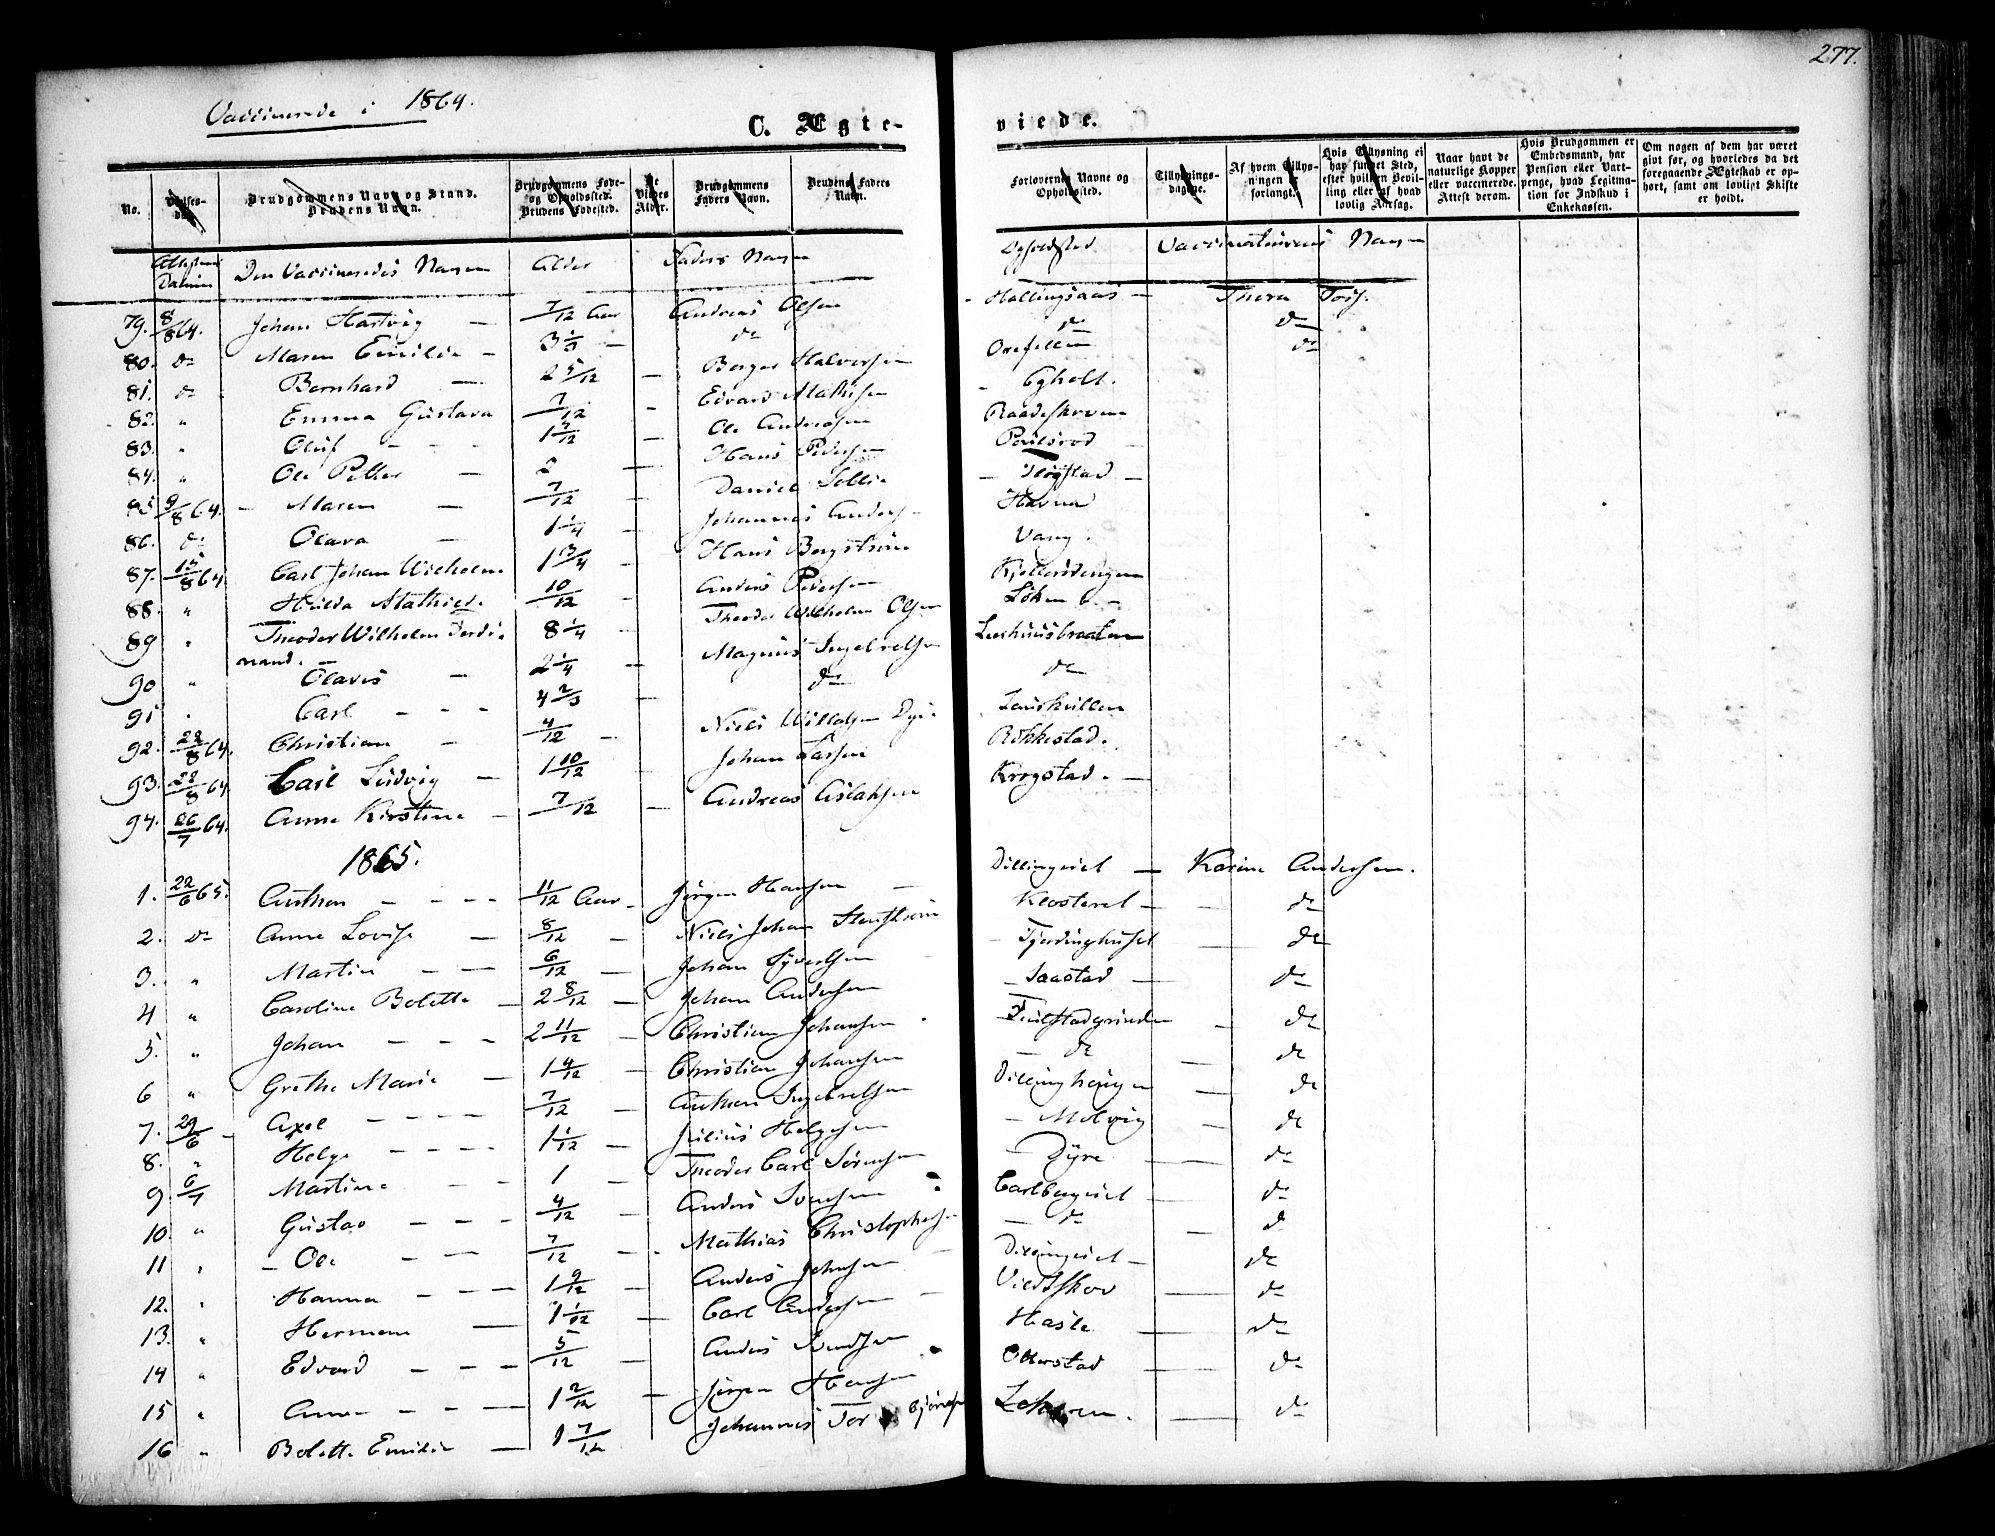 277.
Vaccinerede i 1864.
C. Ægte-
viede.
No.
Brudgommens Navn og Stand. Brudens Navn.
Brudgommens Føde- og Opholdssted. Brudens Fødested.
De Viedes Alder.
Brudgommens Faders Navn.
Brudens Faders Navn.
Forlovernes Navne og Opholdssted.
Tillysnings-dagene.
Af hvem Tillysningen er forlangt.
Hvis Tillysning ei har fundet Sted, efter hvilken Bevilling eller af hvad lovlig Aarsag.
Naar havt de naturlige Kopper eller vaccinerede. Attest derom.
Hvis Brudgommen er Embedsmand, har Pension eller Vartpenge, hvad Legitimation for Indskud i Enkekassen.
Om nogen af dem har været givt før, og hvorledes da det foregaaende Ægteskab er ophørt, samt om lovligt Skifte er holdt.
Attestens Datum Den Vaccineredes Navn Alder Faders Navn Opholdsted Vaccinateurens Navn
79. 8/8 64. Johan Hartvig — 7/12 Aar Andreas Olsen Hollingsaas — Thora
80. do Maren Emilie — 3 1/3 — do do do
81. do Bernhard — 2 5/12 — Berger Halvorsen Orefellen do
82. " Emma Gustava 7/12 - Edvard Mathisen - Egholt.
83. " Oluf - - - 1 7/12 — Ole Andersen Raadeskoven
84. " Ole Petter — 2 — Hans Pedersen Paulsrød —
85 9/8 64. - Maren — 7/12 — Daniel Sollie
86. do Olava — 1 1/4 — Johannes Anders - Havna
87. 12/8 64 Carl Johan Wilhelm. 1 3/4 — Hans Bergstrøm Vang.
88. " Hilda Mathild. 10/12 - Anders Pedersen
89 " Theodor Wilhelm Ferdi- 8 1/4 - Theodor Wilhelm Olsen Løken
nand. —
90 " Olaves — 2 1/4 — Magnus Ingebretsen
91 . Carl - - - 4 2/3 — do do
92. 22/8 64. Christian — 4/12 — Niels
93. 22/8 64. Carl Ludvig — 1 10/12 Johan Larsen Rokkestad.
94. 26/7 64. Anne Kirstine — 7/12 — Andreas Aslaksen Krogstad. —
1865.
1. 22/6 65. Anthon - - - - 11/12 Aar - Jørgen Hansen — Dillingeiet — Karine Andersen.
2. do Anne Lovise — 8/12 — Niels Johan Klosteret — do
3. " Martin - - — 6/12 — Johan Syvertsen - Fjerdinghuset — do
4 " Caroline Bolette — 2 8/12 — Johan Andersen - Saastad — do
5. " Johan - - - 2 11/12 — Christian Johansen do
6 " Grethe Marie — 1 4/12 — Christian Johansen — do — do
7. 29/6 - Axel - - - - 7/12 — Anthon Ingebretsen Dillinghaugen — do
8. " Helge - - - 1 1/12 — Julius Helgesen - Molvig — do
9 6/7 Martine - - — 1 — Theodor Carl Sørensen - Dyre — do
10. " Gustav - - - 4/12 — Anders Carlbergeiet — do
11 " - Ole - - — 7/12 — Mathias Christophersen — do — do
12. " Hanna - - - 1 9/12 — Anders Johnsen — Dillingeiet — do
13. " Herman — 1 1/12 — Carl Andersen — do
14 " Edvard - - - 5/12 — Anders Hasle — do
15 " Anna - - - 1 2/12 — Jørgen Hansen Otterstad — do
16 " Bolette Emilie — 1 7/12 Johannes — do